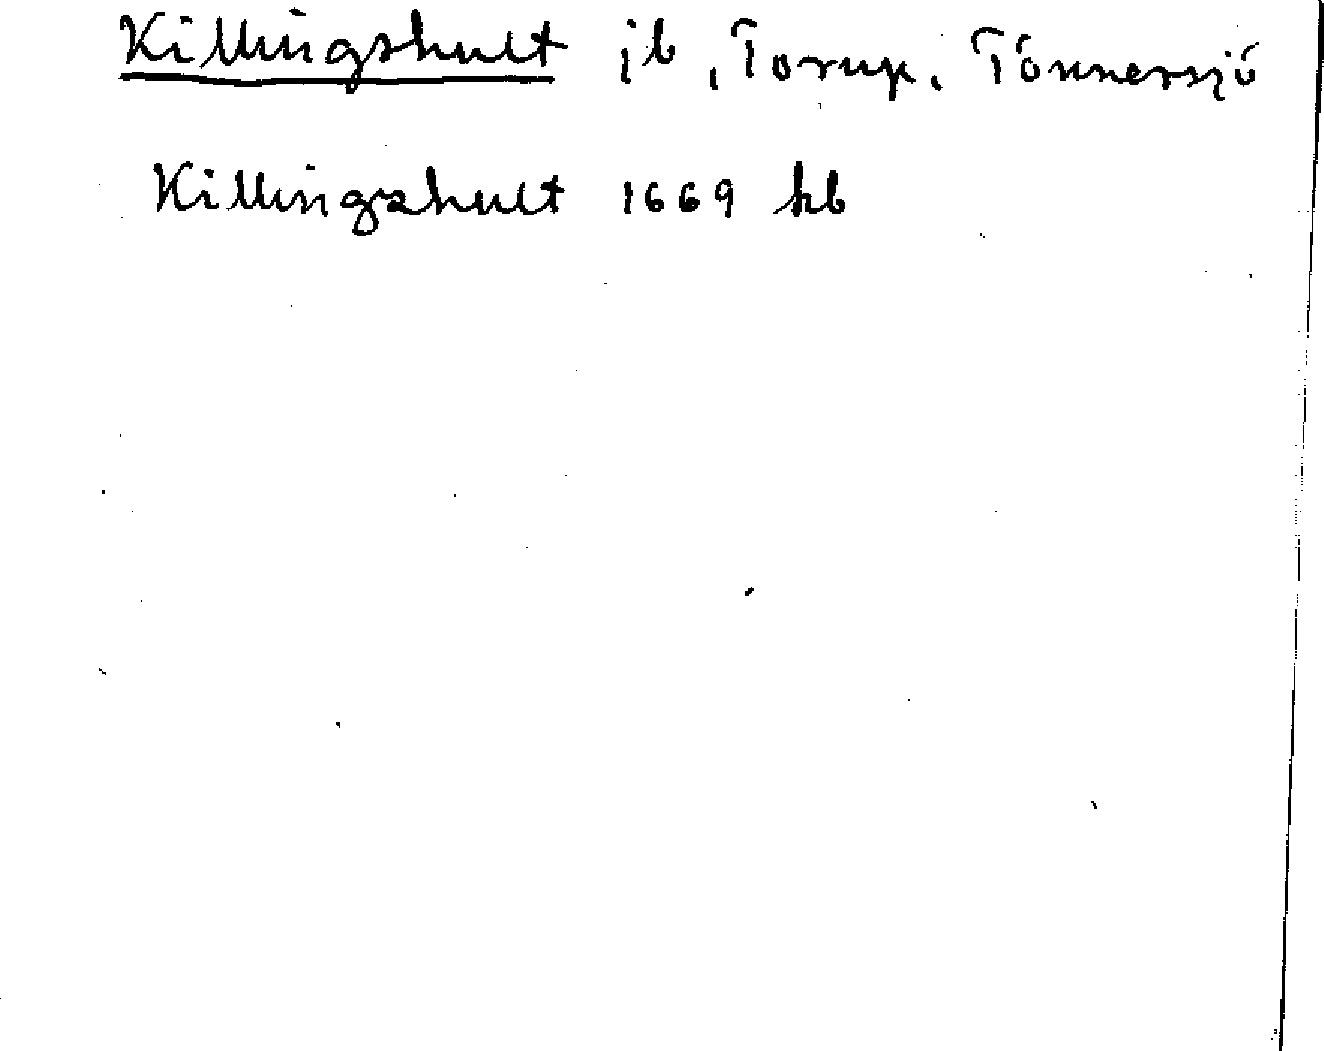 Killingshult jb, Torup, Tönnersjö
Killingshult 1669 hb